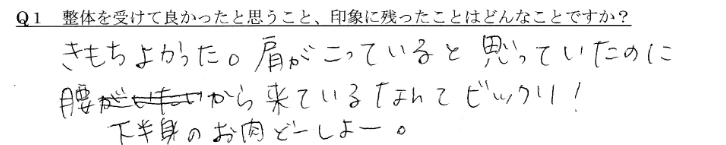 Q1 整体を受けて良かったと思うこと、印象に残ったことはどんなことですか？
きもちよかった。肩がこっていると思っていたのに
腰がいたいから来ているなんてビックリ！
下半身のお肉どーしよー。